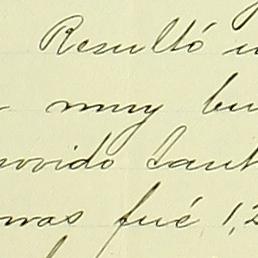 Resultó u
muy bu
ovido tant
mas fué 1,2